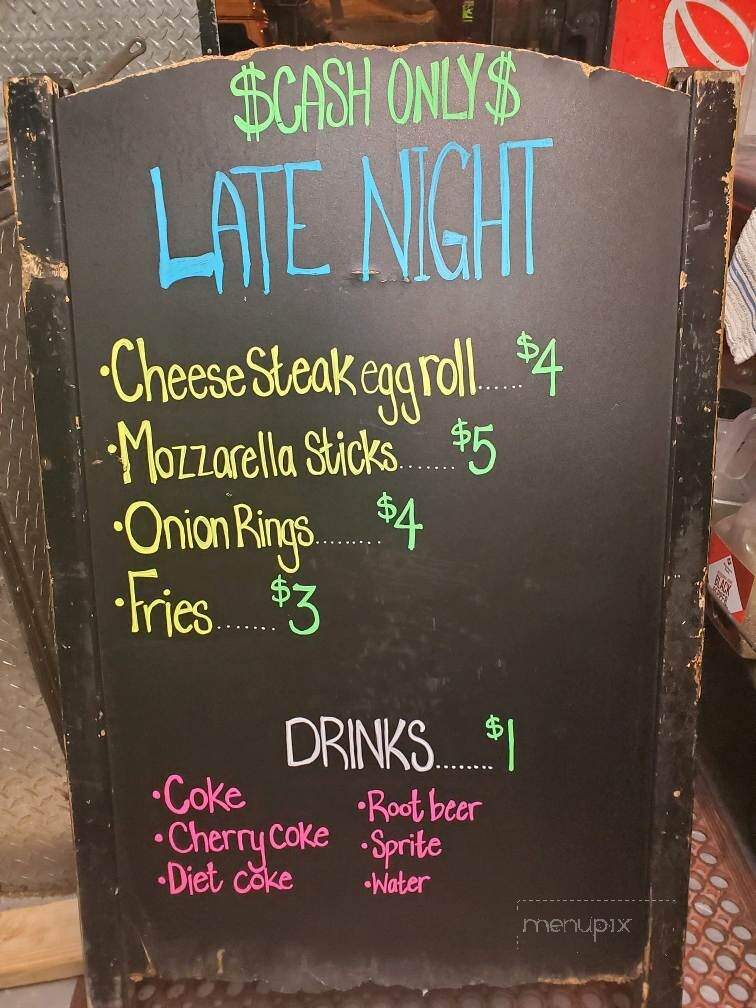 $CASH ONLY$
LATE NIGHT
•Cheese Steak egg roll......$4
•Mozzarella Sticks.......$5
•Onion Rings........$4
•Fries.......$3
DRINKS.......$1
•Coke
•Cherry Coke
•Diet coke
•Root beer
•Sprite
•Water
BLACK
menupix